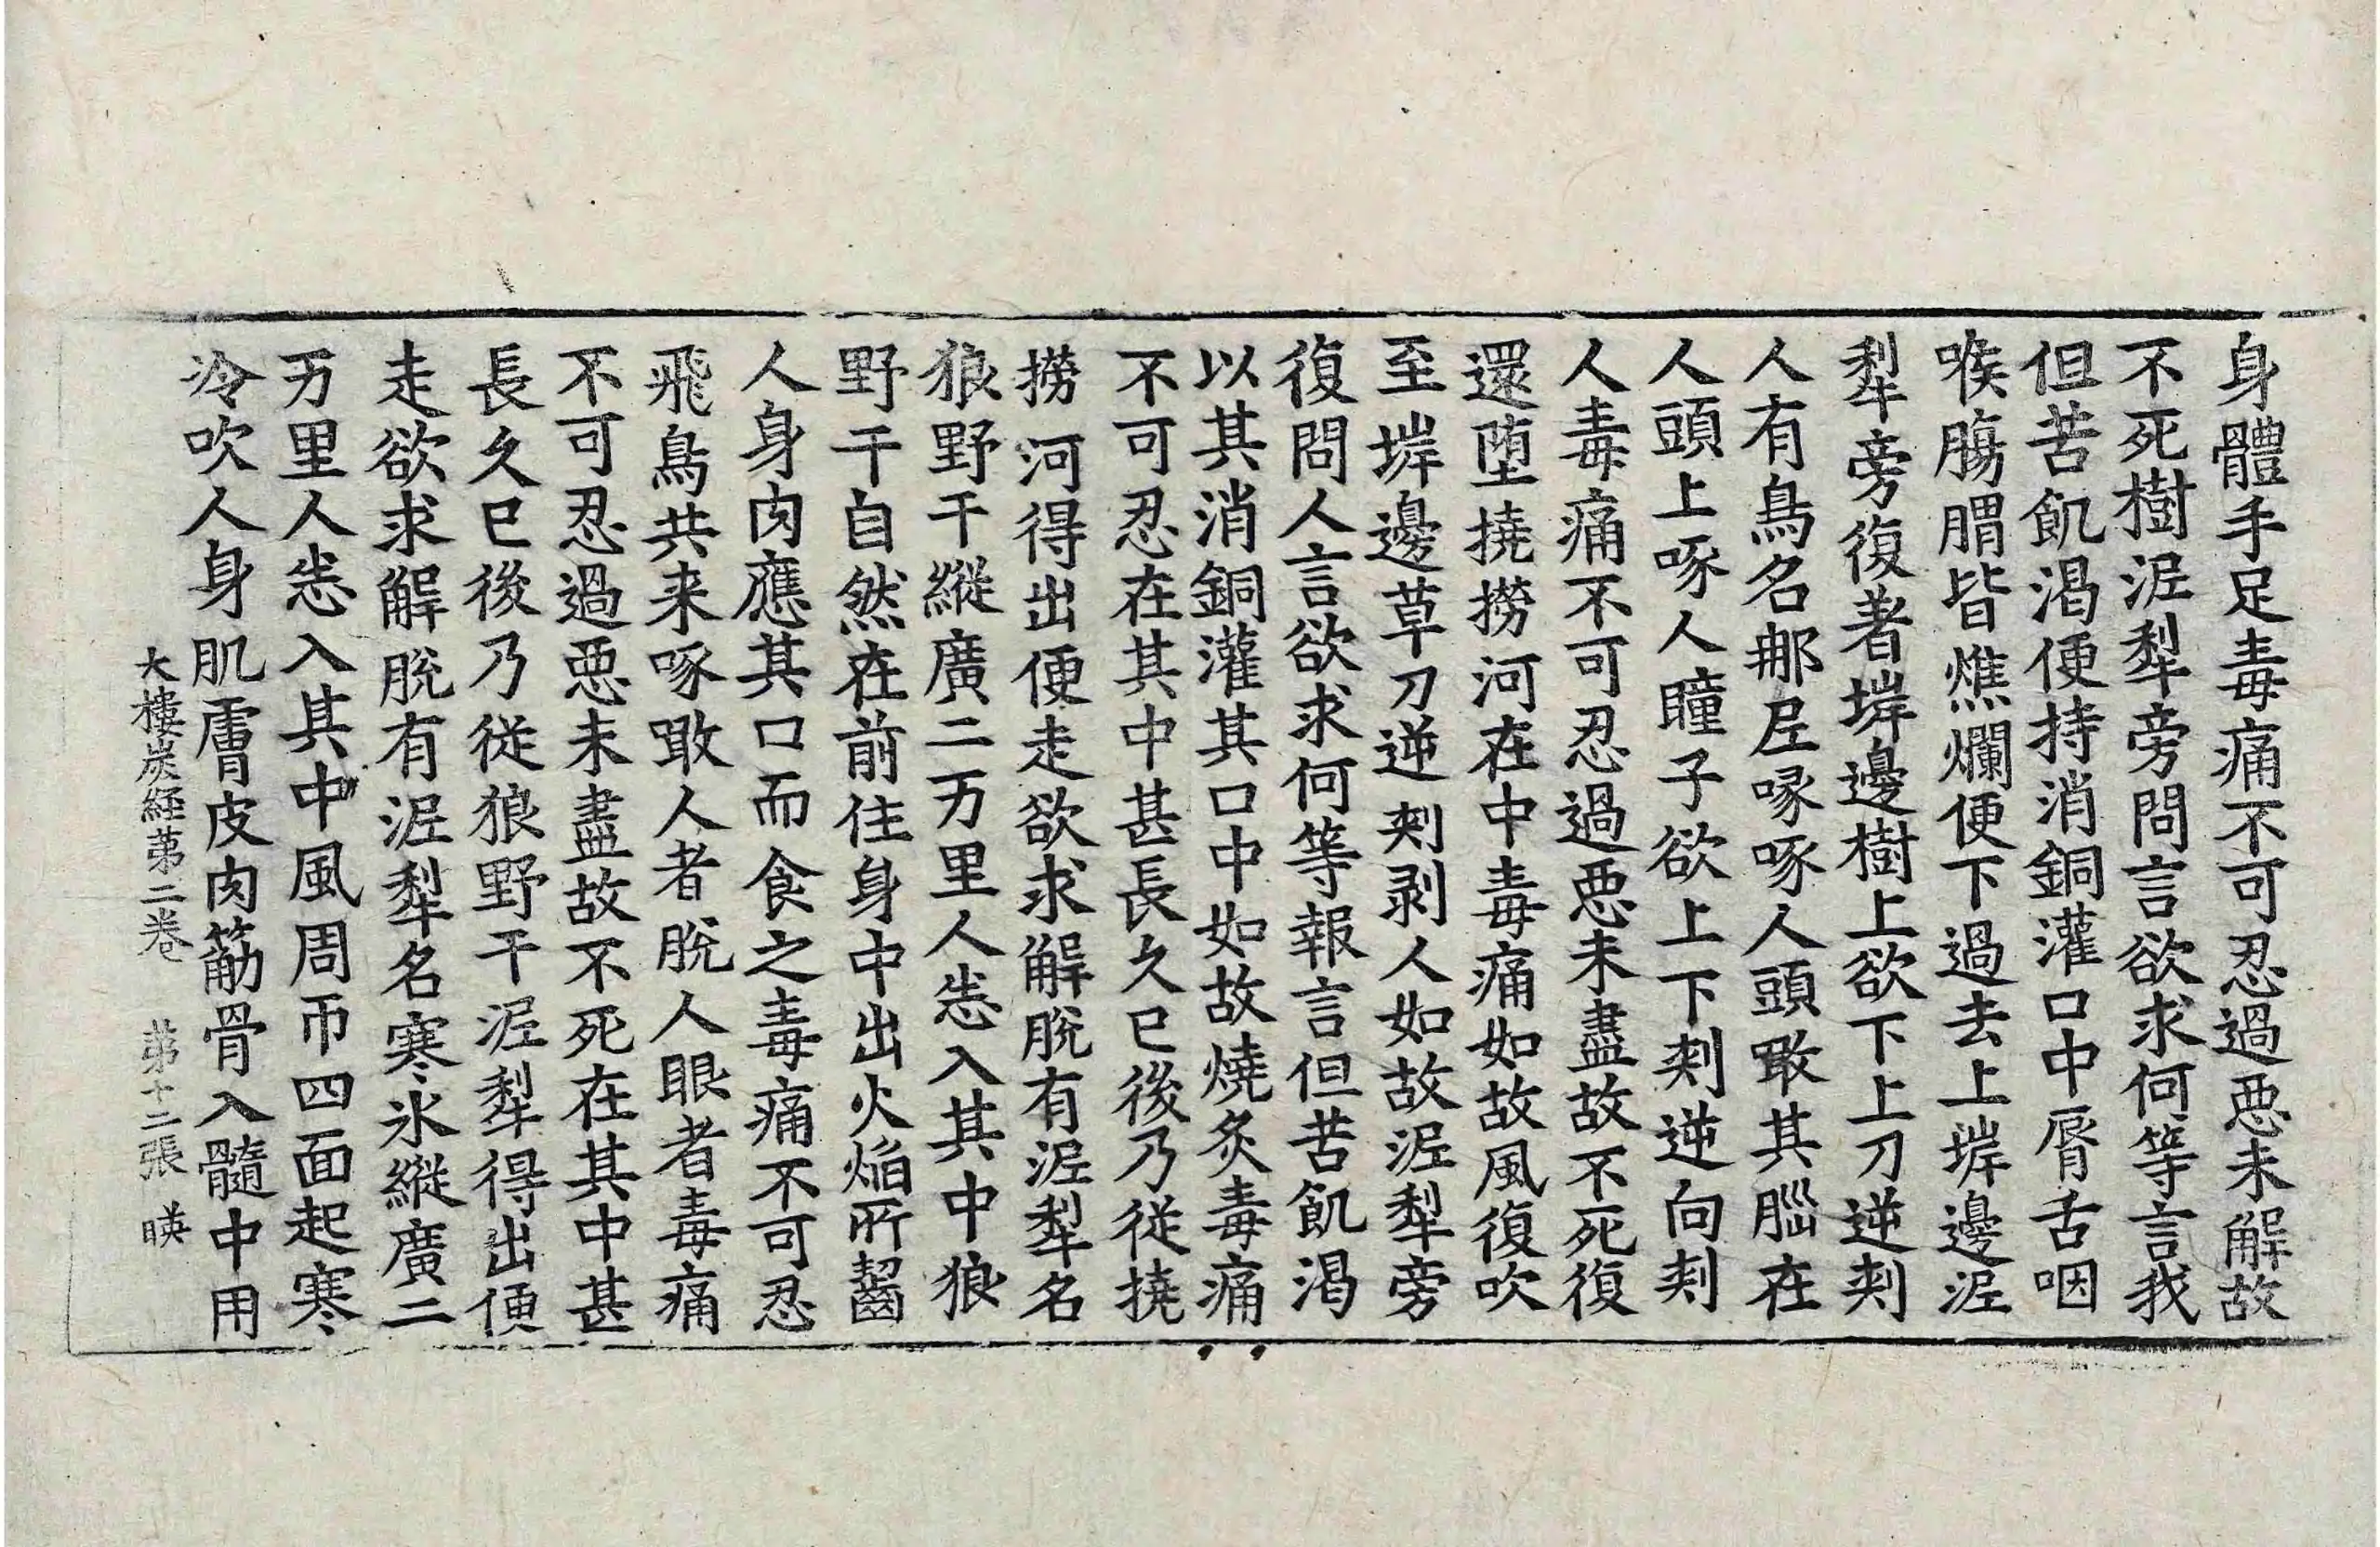 身體手足毒痛不可忍過惡未解故
不死樹泥犁旁問言欲求何等言我
但苦飢渴便持消銅灌口中脣舌咽
喉腸𦝩皆燋爛便下過去上堓邊泥
犁旁復著堓邊樹上欲下上刀逆刾
人有鳥名那𡰱啄啄人頭噉其𦛁在
人頭上啄人瞳子欲上下刾逆向刾
人毒痛不可忍過惡未盡故不死復
還堕撓撈河在中毒痛如故風復吹
至堓邊草刀逆刾剥人如故泥犁旁
復問人言欲求何等報言但苦飢渴
以其消銅灌其口中如故燒炙毒痛
不可忍在其中甚長久已後乃從撓
撈河得出便走欲求解脫有泥犁名
狼野干縱廣二万里人悉入其中狼
野干自然在前住身中出火焔所齧
人身肉應其口而食之毒痛不可忍
飛鳥共来啄噉人者脫人眼者毒痛
不可忍過惡未盡故不死在其中甚
長久已後乃從狼野干泥犁得出便
走欲求解脫有泥犁名寒氷縱廣二
万里人悉入其中風周帀四面起寒
冷吹人身肌膚皮肉筋骨入髓中用
大樓炭経苐二卷 苐十二張 暎